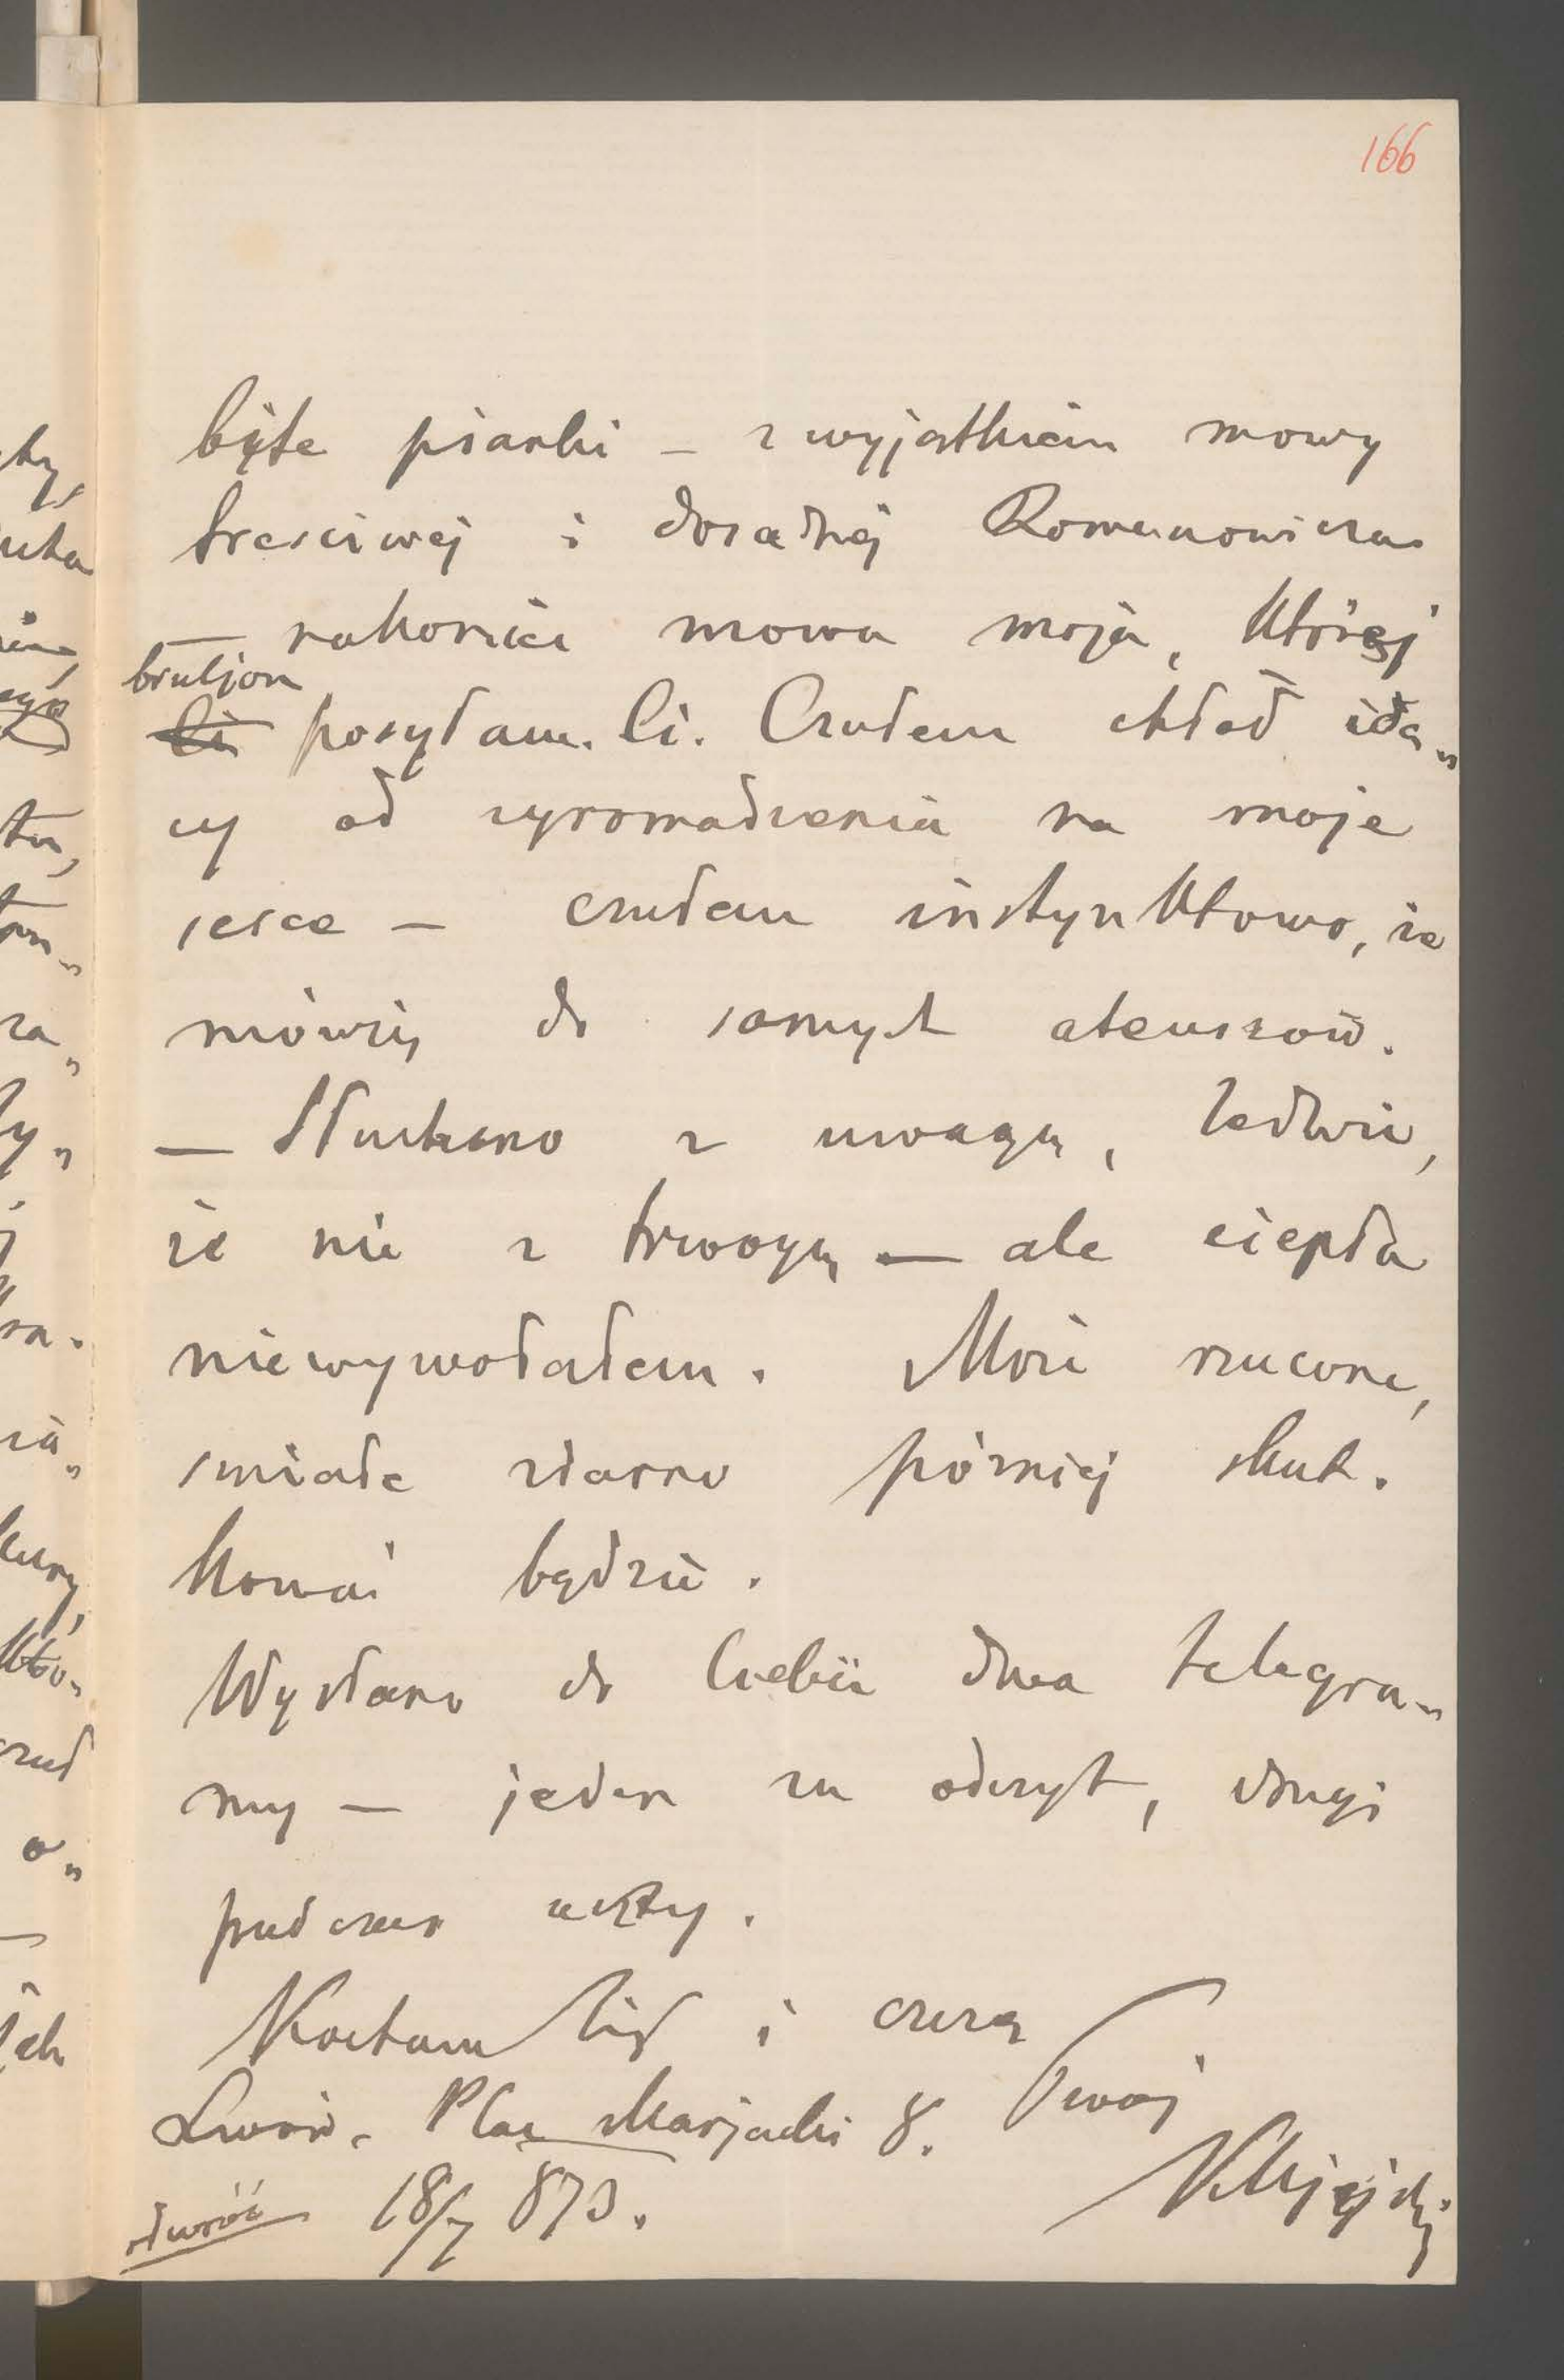 166
były piaski – z wyjątkiem mowy
treściwej i dosadnej Romanowicza
— zakończę mowa moja, której
bruljon
posyłam Ci. Czułem chłód idą„
cy od zgromadzenia na moje
serce – czułem instynktowo, że
mówię do samych ateuszów.
— Słuchano z uwagą, ledwie,
że nie z trwogą — ale ciepła
niewywołałem. Może rzucone,
śmiałe ziarno później skut.
kować będzie.
Wysłano do Ciebie dwa telegra„
my — jeden za odczyt, drugi
podczas uczty.
Kocham Cię i czczę
Twój
Lwów. Plac Marjacki 8.
18/7 873.